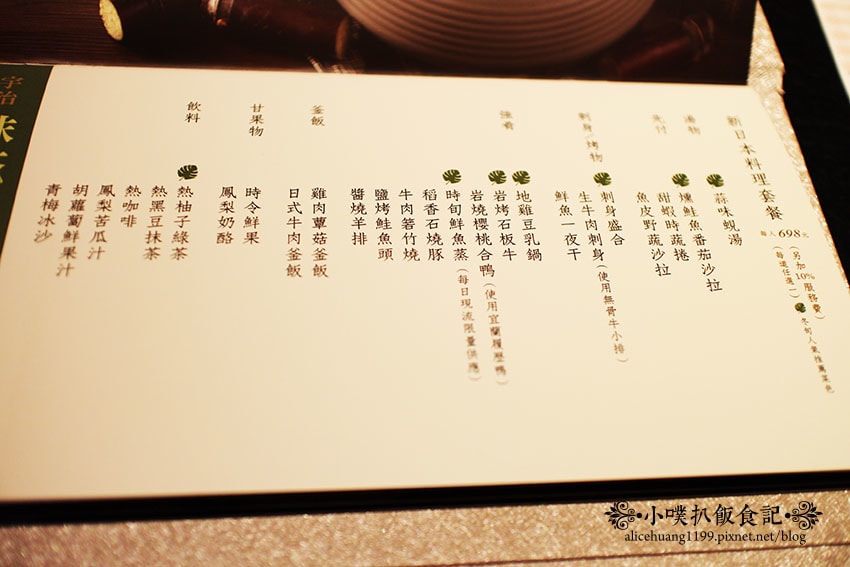 新日本料理套餐 每人698元
(另加10%服務費)
(每道任選一)
冬旬人氣推薦菜色
湯物
蒜味蜆湯
先付
燻鮭魚番茄沙拉
甜蝦時蔬捲
魚皮野蔬沙拉
刺身/烤物
刺身盛合
生牛肉刺身(使用無骨牛小排)
鮮魚一夜干
強肴
地雞豆乳鍋
岩烤石板牛
岩燒櫻桃合鴨(使用宜蘭履歷鴨)
時旬鮮魚蒸(每日現流限量供應)
稻香石燒豚
牛肉箬竹燒
鹽烤鮭魚頭
醬燒羊排
釜飯
雞肉蕈菇釜飯
日式牛肉釜飯
甘果物
時令鮮果
鳳梨奶酪
飲料
熱柚子綠茶
熱黑豆抹茶
熱咖啡
鳳梨苦瓜汁
胡蘿蔔鮮果汁
青梅冰沙
宇治
小噗扒飯食記
alicehuang1199.pixnet.net/blog